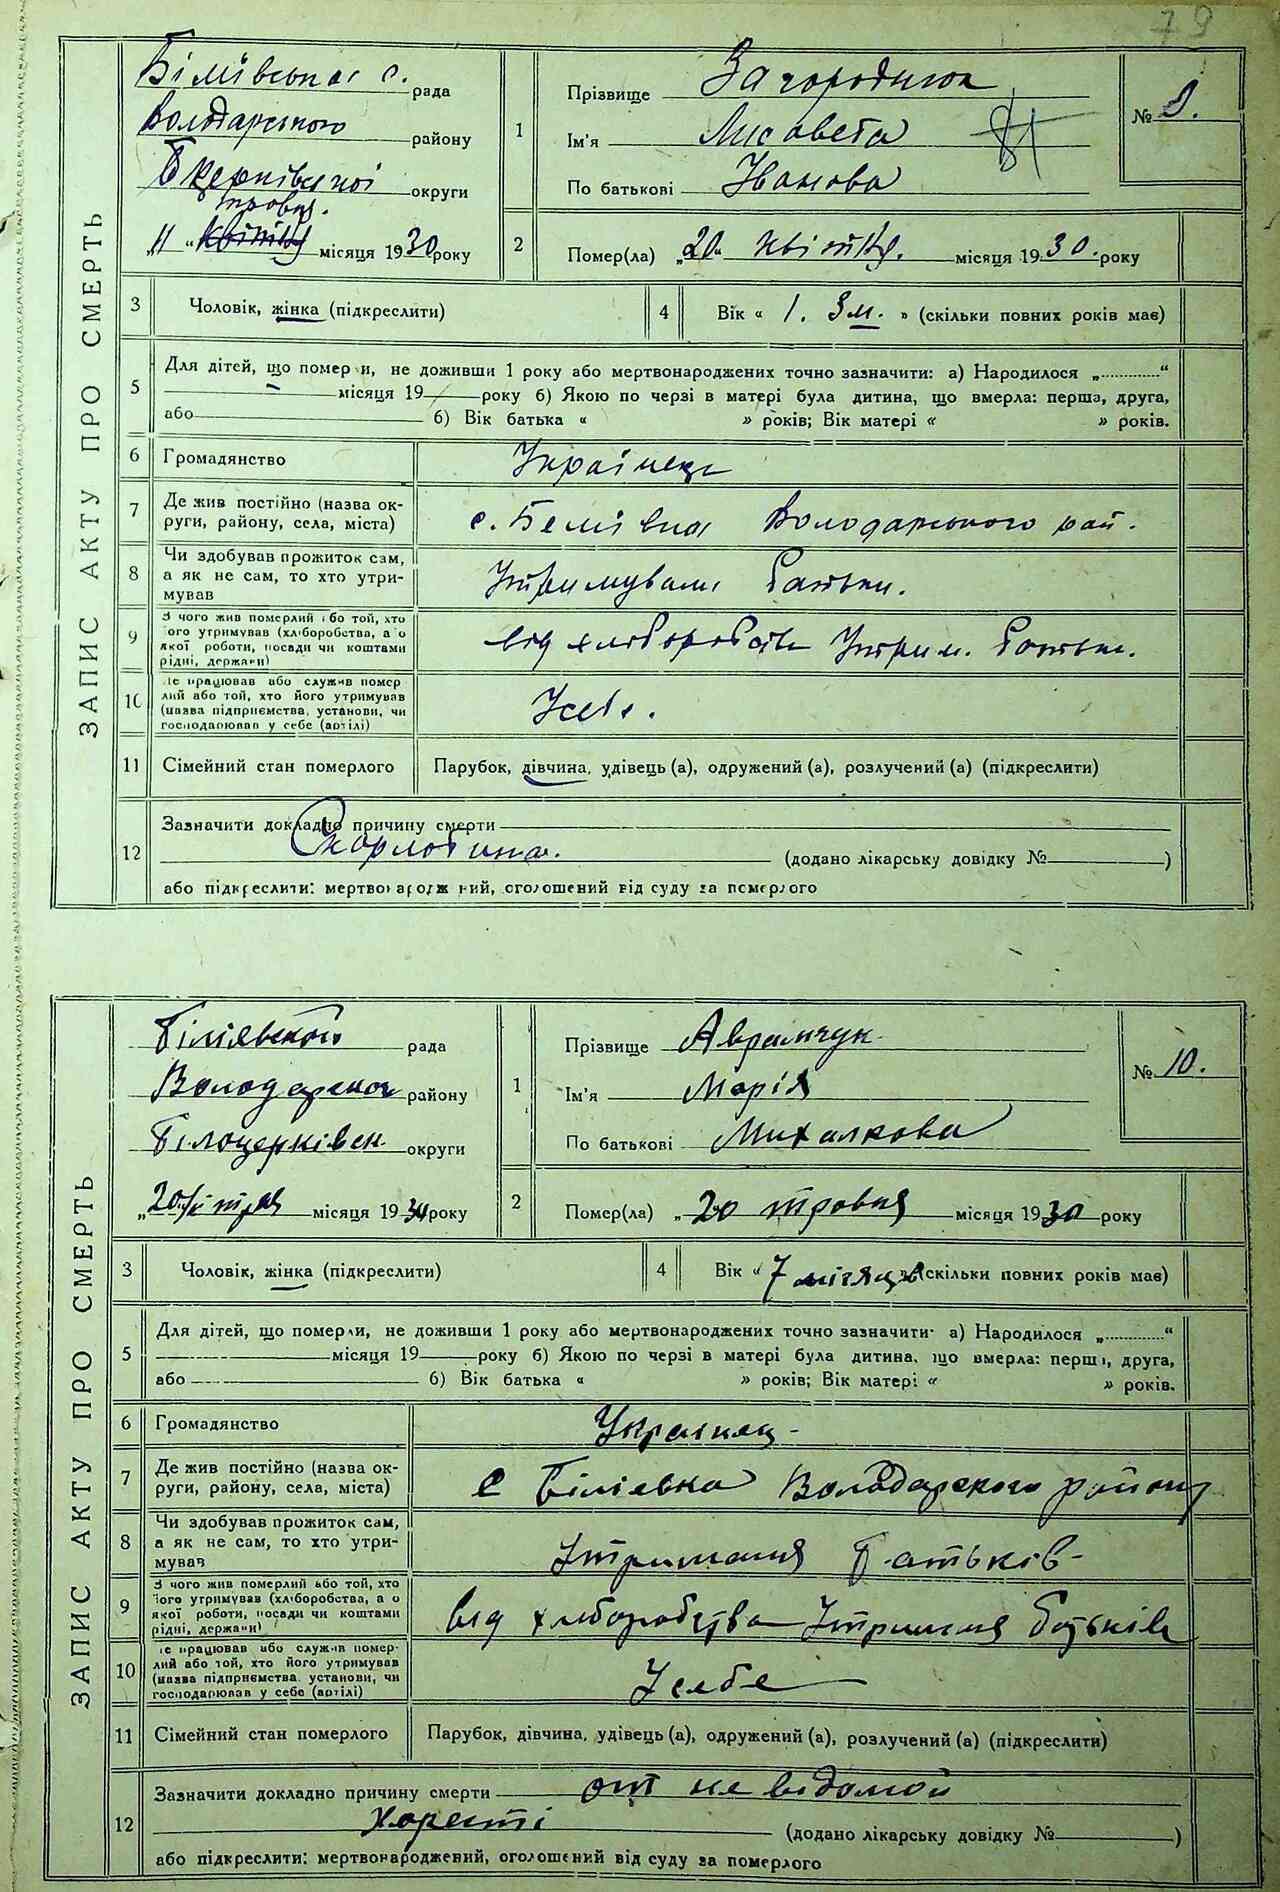 79
ЗАПИС АКТУ ПРО СМЕРТЬ
Біліївська с. рада
Володарського району
Б Церківської округи
травн.
„11 “ квітня місяця 1930 року
1
Прізвище Загороднюк
Ім'я Лисавета
По батькові Іванова
№ 9.
81
2
Помер(ла) „20 квітня. місяця 1930. року
3 Чоловік, жінка (підкреслити)
4 Вік « 1. 3 м. » (скільки повних років має)
5 Для дітей, що померли, не доживши 1 року або мертвонароджених точно зазначити: а) Народилося „............“
місяця 19 року б) Якою по черзі в матері була дитина, що вмерла: перша, друга,
або б) Вік батька « » років; Вік матері « » років.
6 Громадянство Українець
7 Де жив постійно (назва ок-
руги, району, села, міста) с. Беліївка Володарського рай.
8 Чи здобував прожиток сам,
а як не сам, то хто утри-
мував Утримували батьки.
9 З чого жив померлий або той, хто
його утримував (хліборобства, або
якої роботи, посади чи коштами
рідні, держави) від хліборобства Утрим. батьки.
10 Де працював або служив помер
лий або той, хто його утримував
(назва підприємства, установи, чи
господарював у себе (артілі) У себе.
11 Сімейний стан померлого Парубок, дівчина, удівець (а), одружений (а), розлучений (а) (підкреслити)
12 Зазначити докладно причину смерти
Скорлотина. (додано лікарську довідку № )
або підкреслити: мертвонароджений, оголошений від суду за померлого
ЗАПИС АКТУ ПРО СМЕРТЬ
Біліявської рада
Володарска району
Білоцерківск округи
„20 трвя місяця 1930 року
1
Прізвище Аврамчук
Ім'я Марія
По батькові Михалкова
№ 10.
2
Помер(ла) „ 20 травня місяця 1930 року
3 Чоловік, жінка (підкреслити)
4 Вік « 7 місяців (скільки повних років має)
5 Для дітей, що померли, не доживши 1 року або мертвонароджених точно зазначити: а) Народилося „............“
місяця 19 року б) Якою по черзі в матері була дитина, що вмерла: перша, друга,
або б) Вік батька « » років; Вік матері « » років.
6 Громадянство Украинец -
7 Де жив постійно (назва ок-
руги, району, села, міста) с Білієвка Володарского району
8 Чи здобував прожиток сам,
а як не сам, то хто утри-
мував Утримання батьків -
9 З чого жив померлий або той, хто
його утримував (хліборобства, або
якої роботи, посади чи коштами
рідні, держави) від хліборобства Утримання батьків
10 Де працював або служив помер-
лий або той, хто його утримував
(назва підприємства, установи, чи
господарював у себе (артілі) У себе
11 Сімейний стан померлого Парубок, дівчина, удівець (а), одружений (а), розлучений (а) (підкреслити)
12 Зазначити докладно причину смерти от не відомой
хоресті (додано лікарську довідку № )
або підкреслити: мертвонароджений, оголошений від суду за померлого